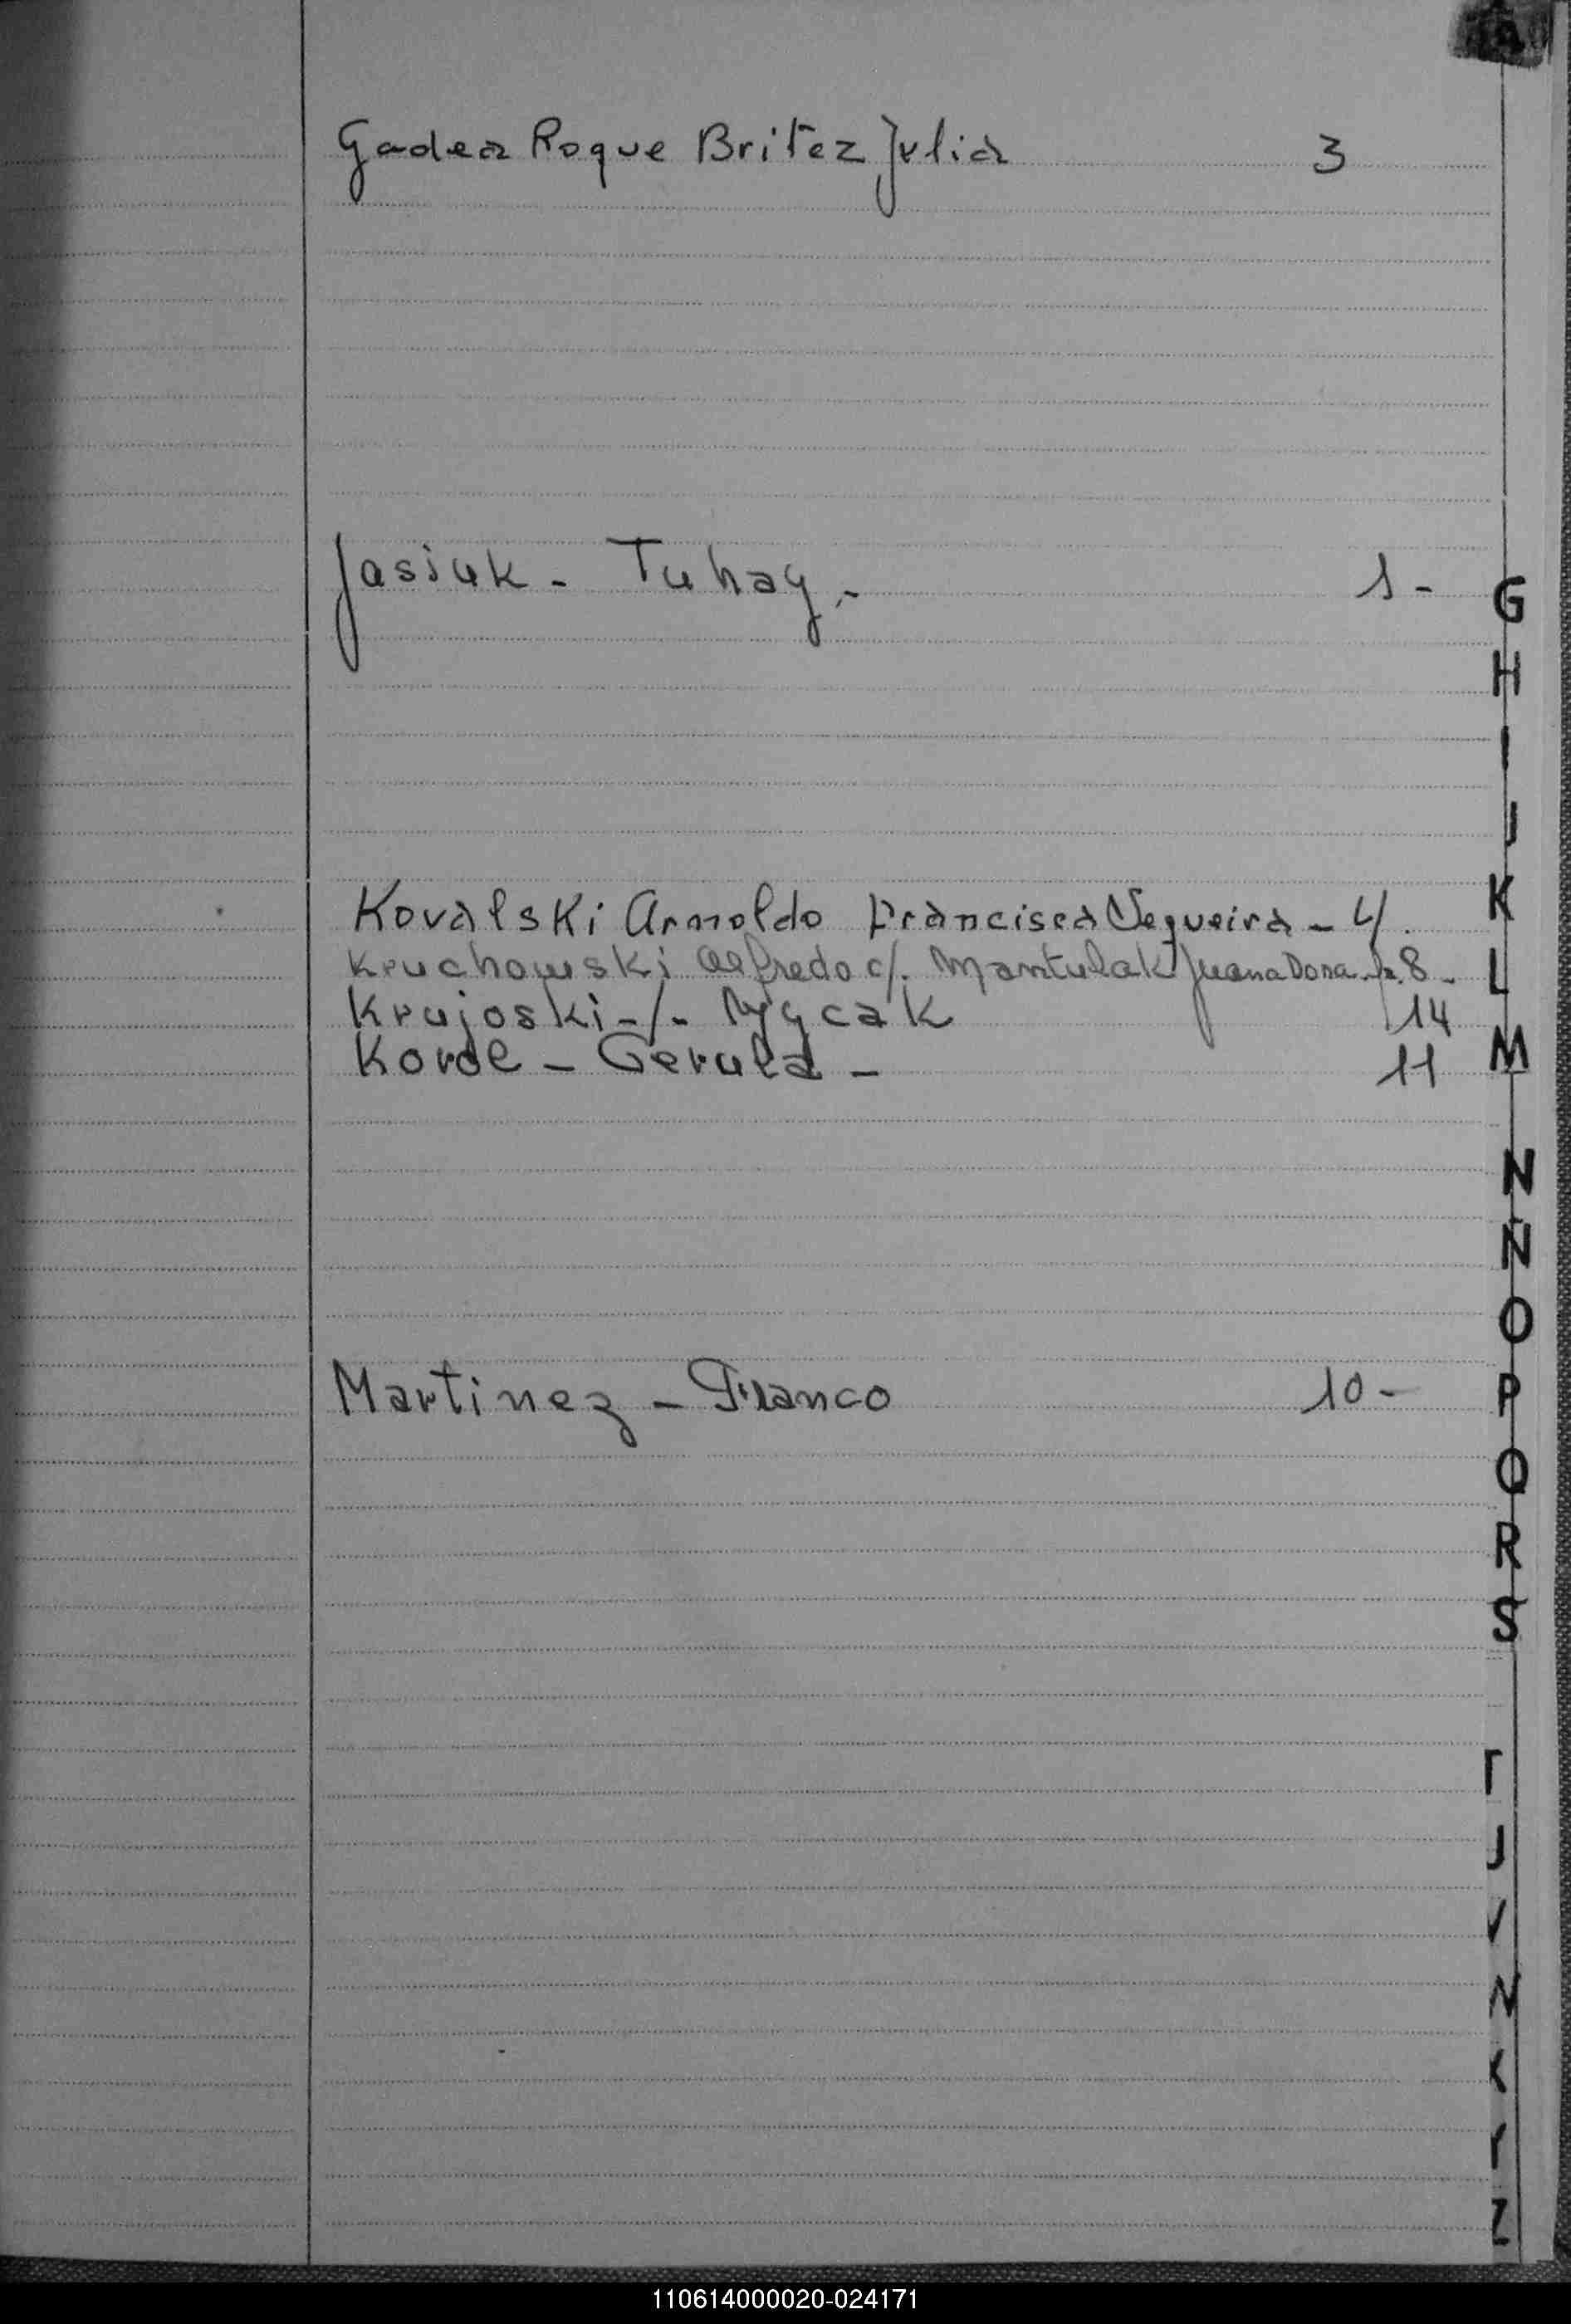 Gadea Roque Britez Julia 3
Jasiuk - Tuhay - 1 -
Kovalski Arnoldo Francisca Sequeira - 4.
Kruchowski Alfredo c/. Mantulak Juana Dora 8 -
Krujoski -/- 14
Korol - Gerula - 11
Martinez - Franco 10 -
G
H
I
J
K
L
M
N
N
O
P
Q
R
S
T
U
V
X
Y
Z
110614000020-024171